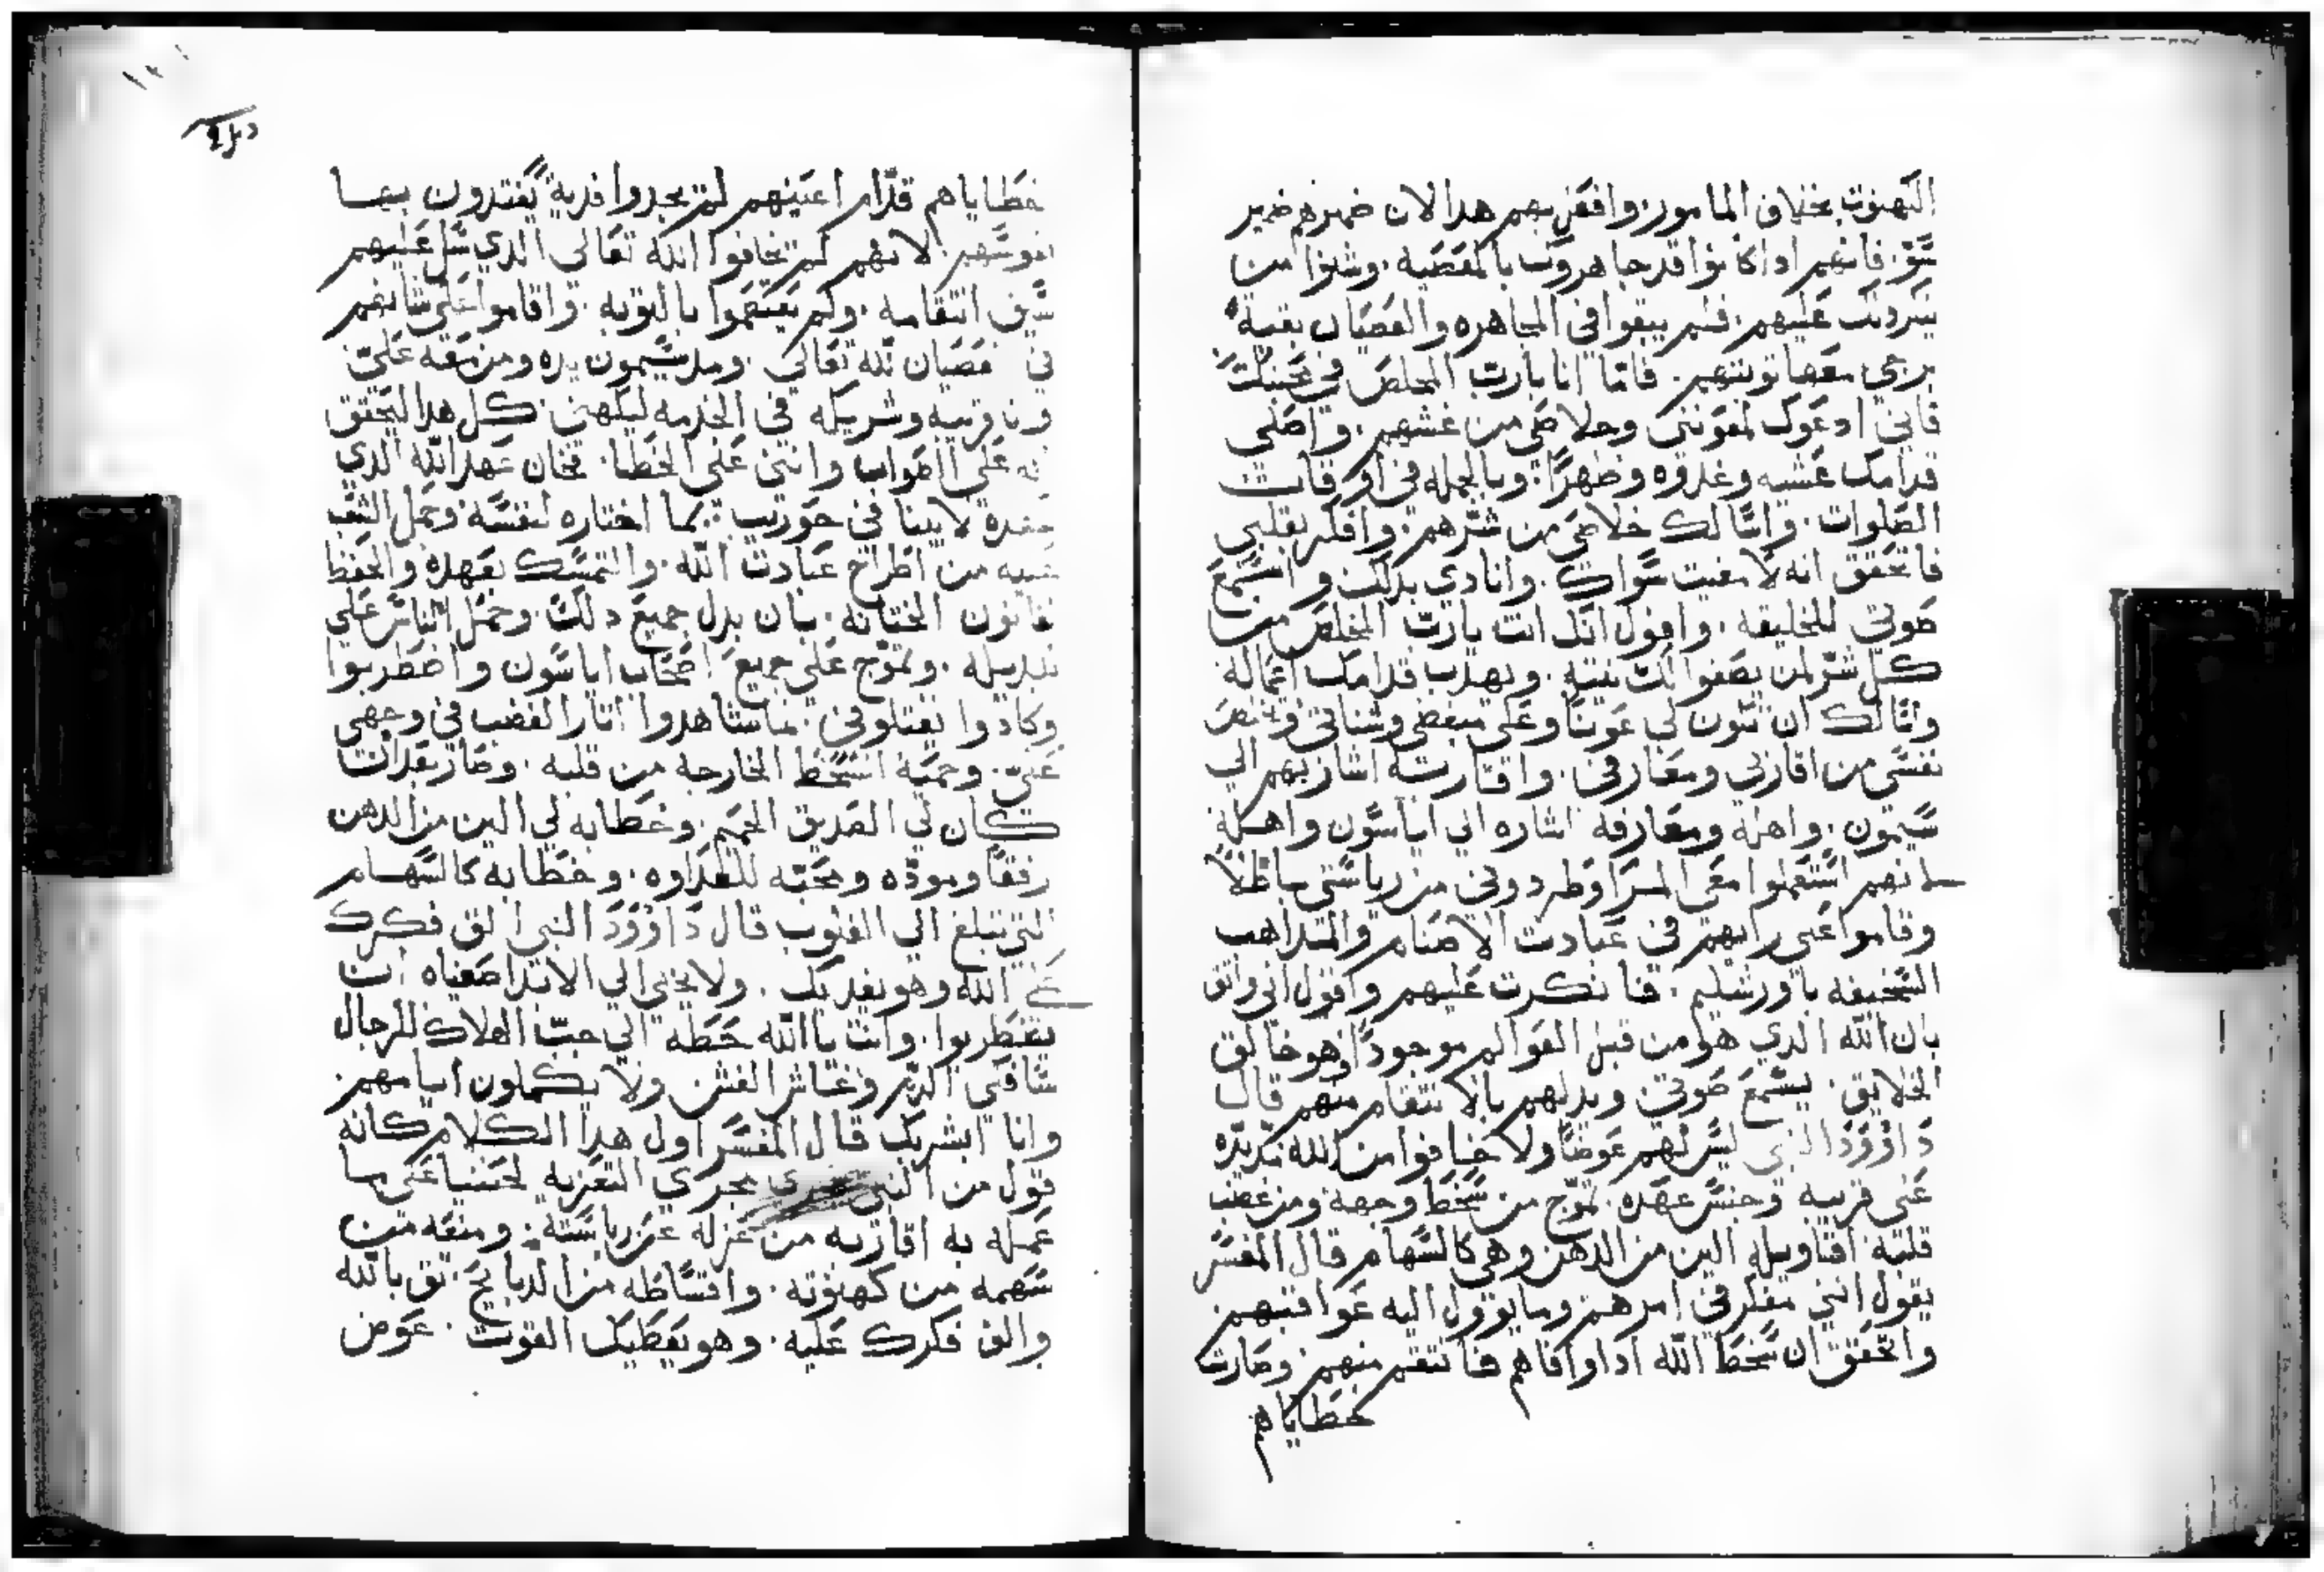 الكهنوت بخلاف المامور. وافعل بهم هدا لان ضميرهم ضمير
سَو. فانهم ادا كانوا قد جاهروك بالمعصيه. وسلوا من
يردك عليهم. فلم يبقوا في المجاهره والعصيان بقية
يرجي معها توبتهم. فاما انا يارب المخلص في محبتك
فاني ادعوك لمعونتي وخلاصي من غشهم. واصلي
قدامك عشيه وغدوه وظهرًا. وبالجمله في اوقات
الصلوات. واسالك خلاصي من شرهم. وافكر بقلبي
فاتحقق انه لا مغيت سواك. وانادي بدلك واسمع
صوتي للخليقه. واقول انك انت يارب المخلص من
كل شر لمن يصفوا لك نيته. ويهدب قدامك اعماله
واسالك ان تكون لي عونا وعلي مبغضي وشناتي وتخلص
نفسي من اقاربي ومعارفي. واقاربه اشار بهم الي
شيمون. واهله ومعارفه اشاره الي اياسون واهله
لانهم استعملوا معي المرا وطردوني من رياستي باطلا
وقاموا علي رايهم في عبادت الاصنام والمداهب
السخيفه باورشليم. فانكرت عليهم واقول اني واتق
بان الله الدي هو من قبل العوالم موجودًا وهو خالق
الخلايق. يسمع صوتي ويدلهم بالانتقام منهم قال
داوود النبي ليس لهم عوضًا ولا خافوا من الله مد يده
علي قريبه ونجس عهده. تموج من سخط وجهه ومن غضب
قلبه اقاويله الين من الدهن وهي كالسهام قال المفسر
يقول انني مفكر في امرهم وما يوول اليه عواقبهم
واتحقق ان سخط الله ادا وافاهم فانتقم منهم وصارت
خطاياهم
خطاياهم قدّام اعينهم لم يجدوا فدية يفتدون بها
نفوسهم لانهم لم يخافوا الله تعالي الدي سل عليهم
سيف انتقامه. ولم يعتصموا بالتوبه. واقاموا علي شانهم
في عصيان الله تعالي. ومد شيمون يده ومن معه عليّ
وانا قريبه وشريكه في الخدمه ليكهن. كل هدا ليحقق
انه علي الصواب وانني علي الخطا. فخان عهد الله الدي
عقده لابينا في حوريب. بما اختاره لنفسه وحمل الشعب
عليه من اطراح عبادت الله. والتمسك بعهده والحفظ
لقانون الختانه. بان بدل جميع دلك. وحمل الناس علي
تبديله. وتموج علي جميع اصحاب اياسون واضطربوا
وكادوا يقتلوني. لما شاهدوا اتار الغضب في وجهي
عليّ. وحمية السخط الخارجه من قلبه. وصار بعد ان
كان لي الصديق الحميم. وخطابه لي الين من الدهن
رفقًا ومودّه ومحبّه للعداوه. وخطابه كالسهام
التي تبلغ الي القلوب قال داوود النبي الق فكرك
علي الله وهو يعديك. ولا يخلي الي الابد اصفياه ان
يضطربوا. وانت يا الله حطه الي جب الهلاك للرجال
سافكي الدم وغاش الغش ولا يكملون ايامهم
وانا ابشر بك قال المفسر اول هدا الكلام كانه
قول من النبي يجري مجري التعزيه لحننيا علي ما
عمله به اقاربه من عزله عن رياسته. ومنعه من
سهمه من كهنوته. واقساطه من الدبايح. تق بالله
والق فكرك عليه. وهو يعطيك القوت. عوض